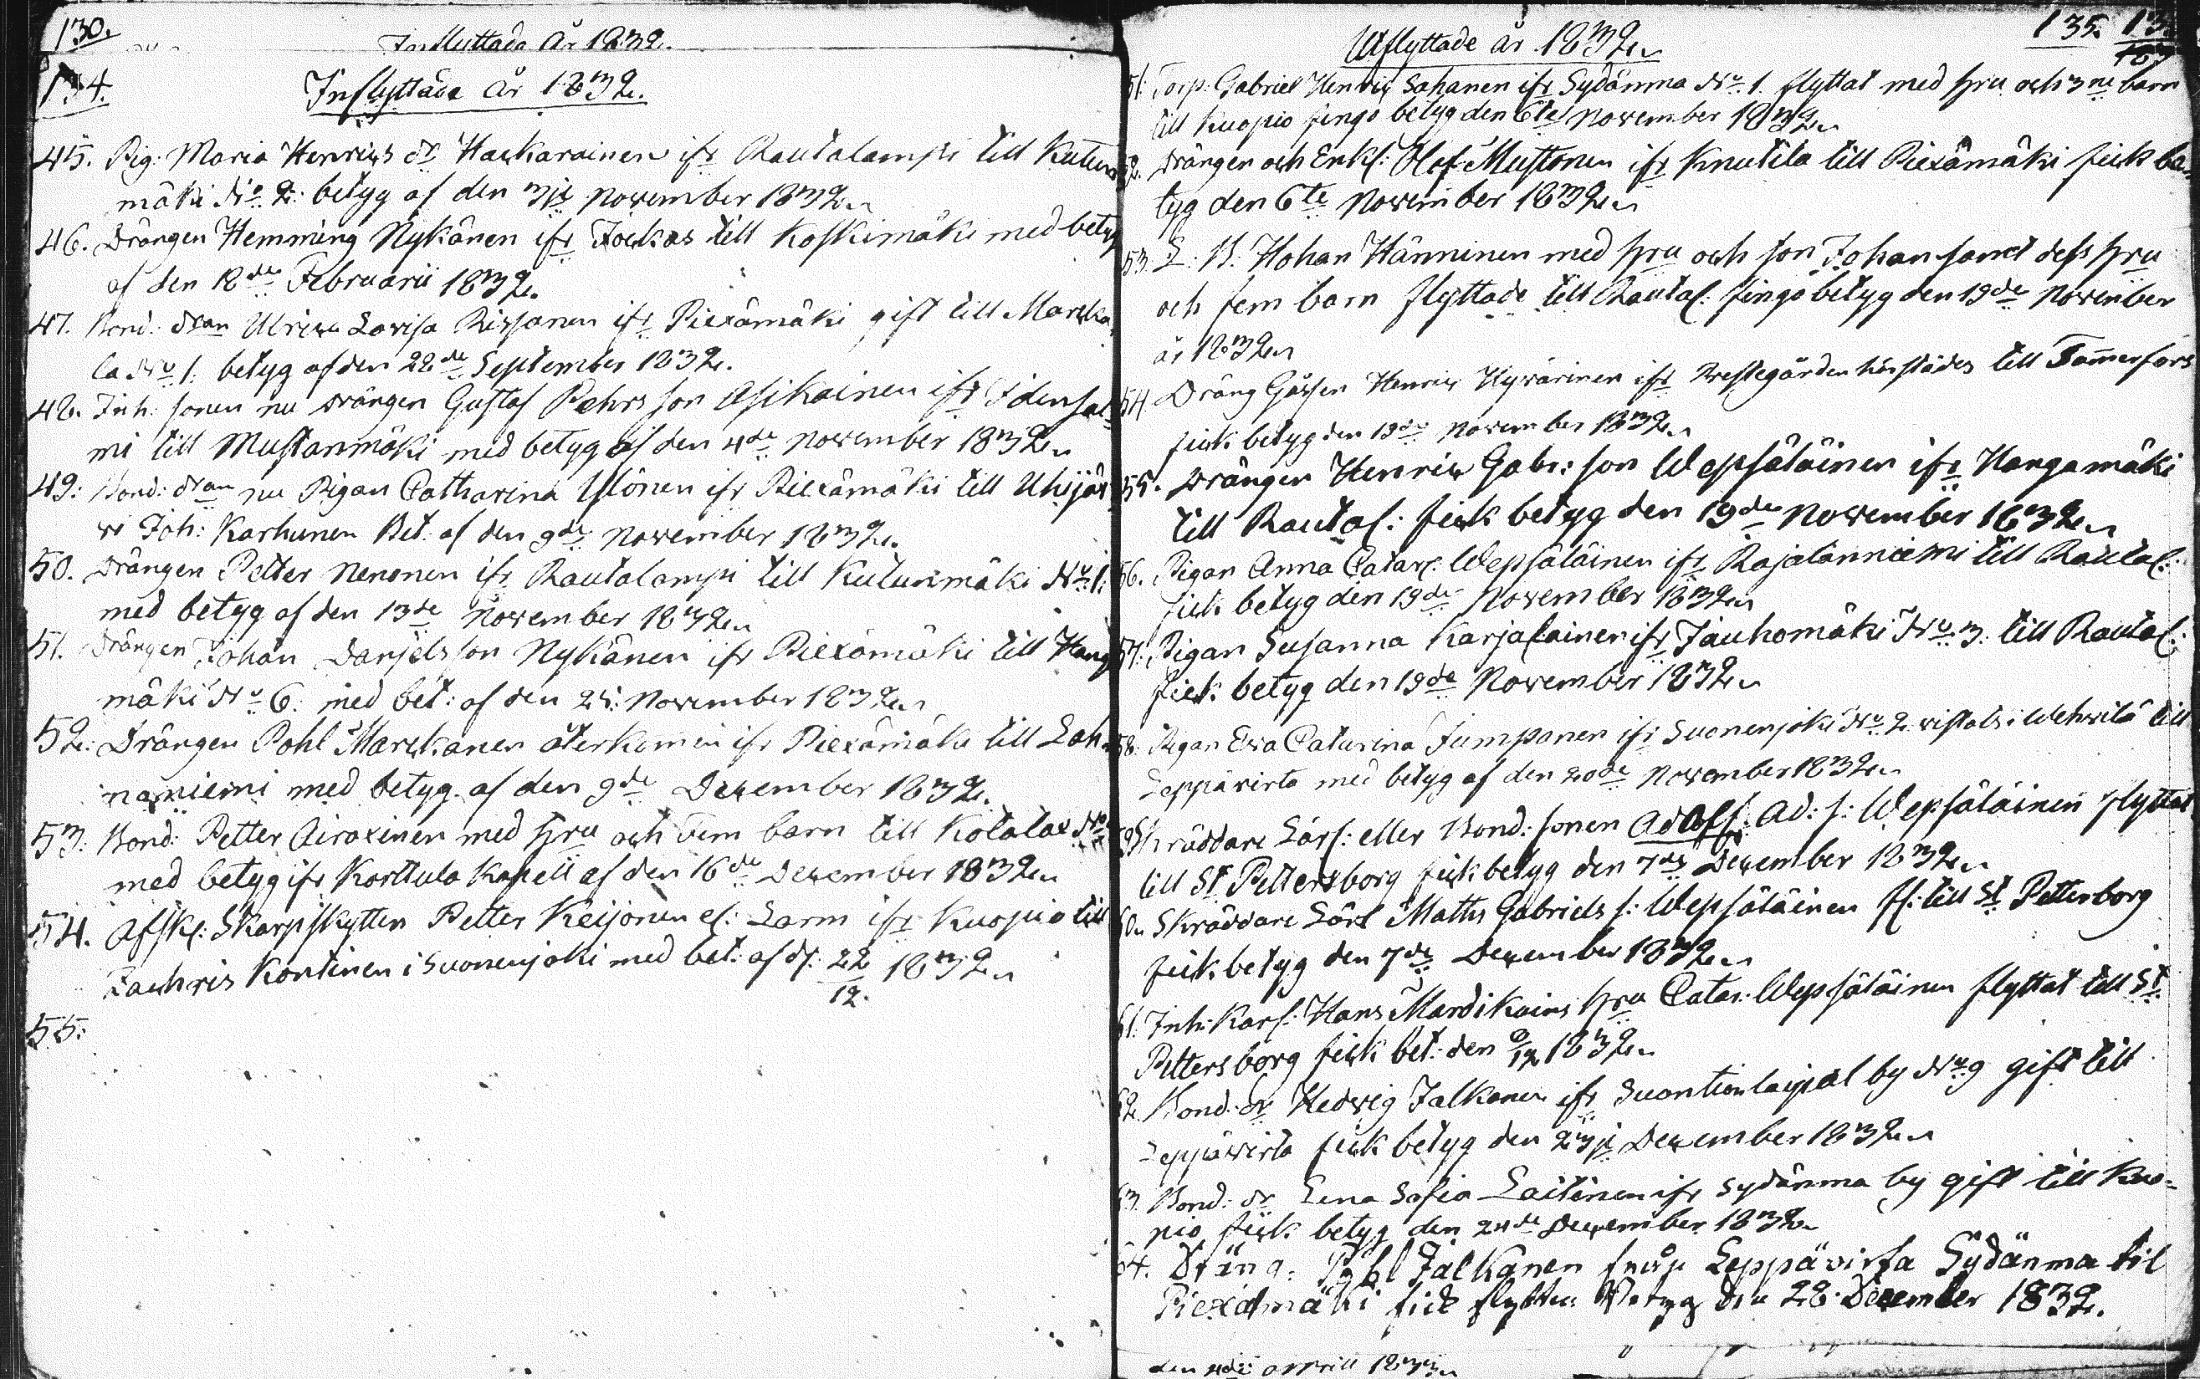 130.
Inflyttade År 1832.
134.
Inflyttade år 1832.
45. Pig: Maria Henrics dr Hackarainen ifr Rautalampi till Kutun
mäki No 2: betyg af den 3je November 1832.
46. Drängen Hemming Nykänen ifr Jockas till Koskimäki med betyg
af den 12de Februarii 1832.
47. Bond: dran Ulrica Lovisa Rissanen ifr Piexämäki gift till Marcka
la No 1: betyg af den 22de September 1832.
48. Inh: sonen nu drängen Gustaf Pehrs son Asikainen ifr Idensal
mi till Mustanmäki med betyg af den 4de November 1832.
49: Bond: dran nu Pigan Catharina Ylönen ifr Piexämäki till Uhijär
vi Joh: Karhunen Bet: af den 9de November 1832.
50. Drängen Petter Nenonen ifr Rautalampi till Kutunmäki No 1:
med betyg af den 13de November 1832.
51. Drängen Johan Danjelsson Nykänen ifr Piexämäki till Hang
mäki No 6: med bet: af den 25: November 1832.
52: Drängen Pohl Marckanen återkomin ifr Piexämäki till Lah
naniemi med betyg af den 9de December 1832.
53: Bond: Petter Airaxinen med hru och fem barn till Kotalax No
med betyg ifr Karttula Kapell af den 16de December 1832.
54. Afsk: Skarpskytten Petter Keijonen el: Larm ifr Kuopio till
Zachris Kontinen i Suonenjoki med bet: af d: 22/12. 1832.
55:
Utflyttade år 1832.
135.
51: Torp: Gabriel Henric Sahanen ifr Sydänma No 1. flyttat med hru och 3ne barn
till Kuopio fingo betyg den 6te November 1832.
52. Drängen och Enkl: Olof Mustonen ifr Knutila till Piexämäki fick be
tyg den 6te November 1832.
53. L: B: Hohan Hänninen med hru och son Johan samt dess hru
och fem barn flyttade till Rautal: fingo betyg den 19de November
år 1832.
54. Dräng Gåssen Henric Hyvärinen ifr Prestegården härstädes till Tamerfors
fick betyg den 19de November 1832.
55. Drängen Henric Gabr: son Wepsäläinen ifr Hangamäki
till Rautal: fick betyg den 19de November 1832.
56. Pigan Anna Catar: Wepsäläinen ifr Rajalanniemi till Rautal:
fick betyg den 19de November 1832.
57: Pigan Susanna Karjalainen ifr Jauhomäki No 3: till Rautal:
fick betyg den 19de November 1832.
58: Pigan Eva Catarina Jumpanen ifr Suonenjoki No 2 vistats i Wehvilä till
Leppävirta med betyg af den 20de November 1832.
59 Skräddare Lärl: eller Bond: sonen Adolf: Ad: s: Wepsäläinen flyttat
till St Pettersborg fick betyg den 7de December 1832.
60. Skräddare Lärl Maths Gabriels s: Wepsäläinen fl: till St Petterborg
fick betyg den 7de December 1832.
61: Inh: Karl: Hans Mardikains hru Catar: Wepsäläinen flyttat till St
Pettersborg fick bet: den 9/12 1832.
62. Bond: dr Hedvig Jalkanen ifr Suontienlaipal by No 9 gift till
Leppävirta fick betyg den 23je December 1832.
63. Bond: dr Lena Sofia Laitinen ifr Sydänma by gift till Kuo=
pio fick betyg den 24de December 1832.
64. Dräng: Pohl Jalkanen från Leppävirta Sydänma til
Piexämäki fick flyttn: Betyg den 28 December 1832.
den 4de aprill 1833.